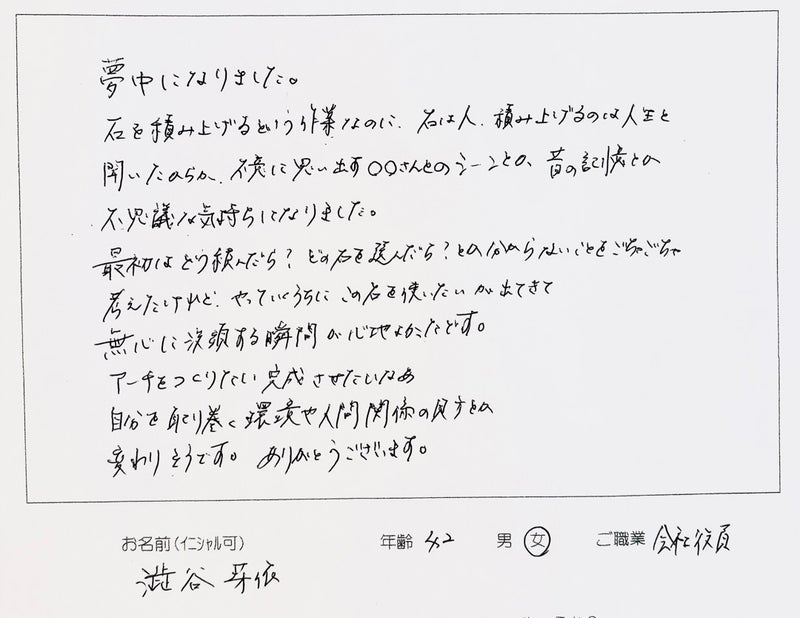 夢中になりました。
石を積み上げるという作業なのに、石は人、積み上げるのは人生と
聞いたからか、不意に思い出す〇〇さんとのシーンとか、昔の記憶とか
不思議な気持ちになりました。
最初はどう積んだら?どの石を選んだら?とか分からないことをごちゃごちゃ
考えたけれど、やっていくうちにこの石を使いたいが出てきて
無心に没頭する瞬間が心地よかったです。
アーチをつくりたい完成させたいなあ
自分を取り巻く環境や人間関係の見方とか
変わりそうです。ありがとうございます。
お名前(イニシャル可) 年齢 42 男 女 ご職業 会社役員
澁谷 芽依